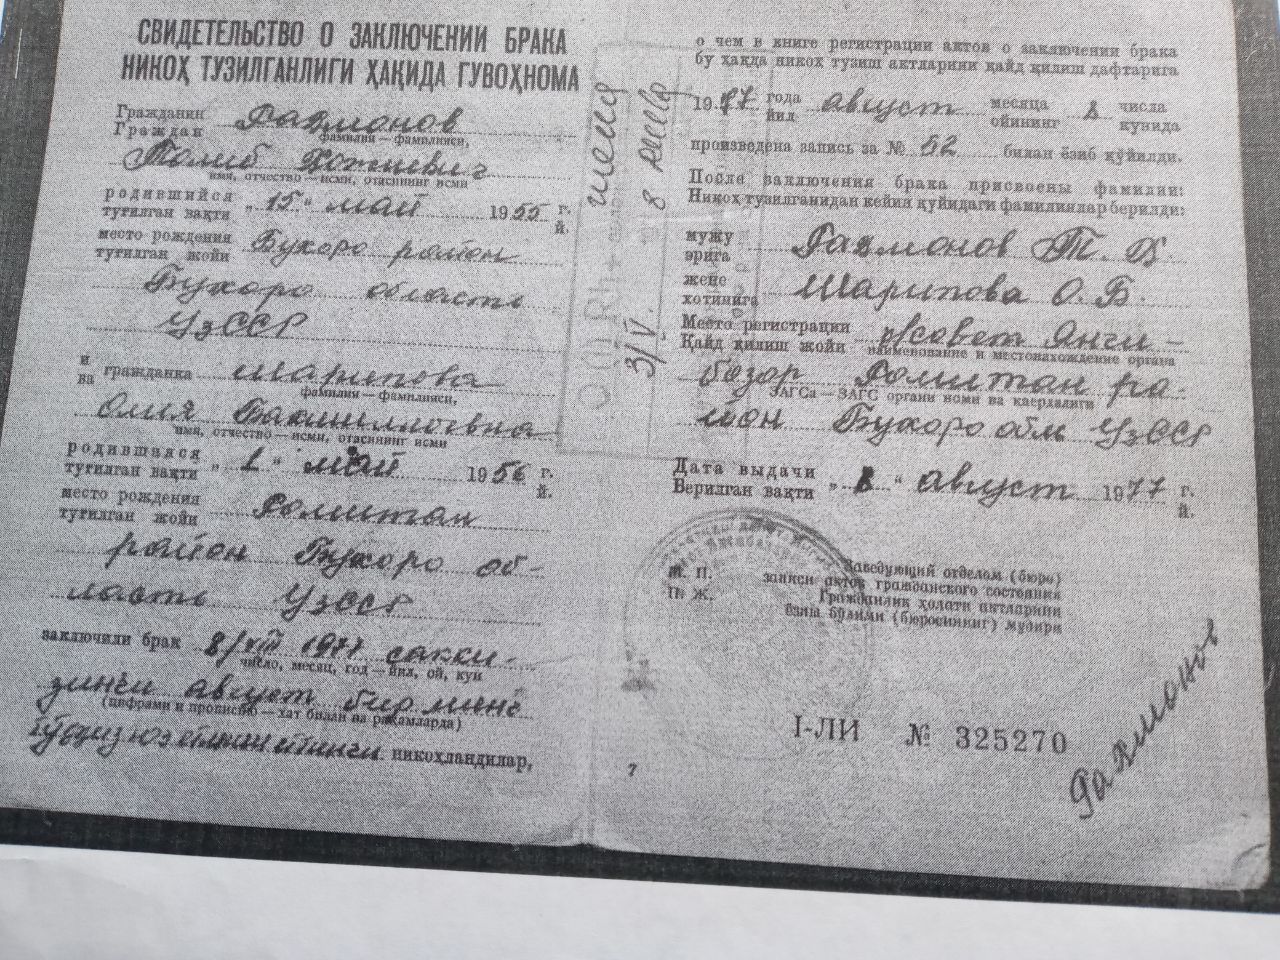 СВИДЕТЕЛЬСТВО О ЗАКЛЮЧЕНИИ БРАКА
НИКОҲ ТУЗИЛГАНЛИГИ ҲАҚИДА ГУВОҲНОМА
Гражданин
Граждан Рахмонов
фамилия — фамилияси,
Толиб Хожиевич
имя, отчество — исми, отасининг исми
родившийся
туғилган вақти „15“ май 1955 г.
й.
место рождения
туғилган жойи Бухоро район
Бухоро область
УзССР
и
ва гражданка Шарипова
фамилия — фамилияси,
Олия
имя, отчество — исми, отасининг исми
родившаяся
туғилган вақти „1“ май 1956 г.
й.
место рождения
туғилган жойи Ромитан
район Бухоро об-
ласть УзССР
заключили брак 8/VIII 1977 сакки-
число, месяц, год — йил, ой, кун
зинчи август бир минг
(цифрами и прописью — хат билан ва рақамларда)
никоҳландилар,
о чем в книге регистрации актов о заключении брака
бу ҳақда никоҳ тузиш актларини қайд қилиш дафтарига
1977 года
йил август месяца
ойининг 8 числа
кунида
произведена запись за № 52 билан ёзиб қўйилди.
После заключения брака присвоены фамилии:
Никоҳ тузилганидан кейин қуйидаги фамилиялар берилди:
мужу
эрига Рахмонов Т. Х.
жене
хотинига Шарипова О. Б.
Место регистрации
Қайд қилиш жойи с/совет Янги-
наименование и местонахождение органа
бозор Ромитан ра-
ЗАГСа — ЗАГС органи номи ва каердалиги
йон Бухоро обл УзССР
Дата выдачи
Берилган вақти „8“ август 1977 г.
й.
М. П.
П. Ж.
Заведующий отделом (бюро)
записи актов гражданского состояния
Гражданлик ҳолати актларини
ёзиш бўлими (бюросининг) мудири
I-ЛИ № 325270
Рахмонов
7